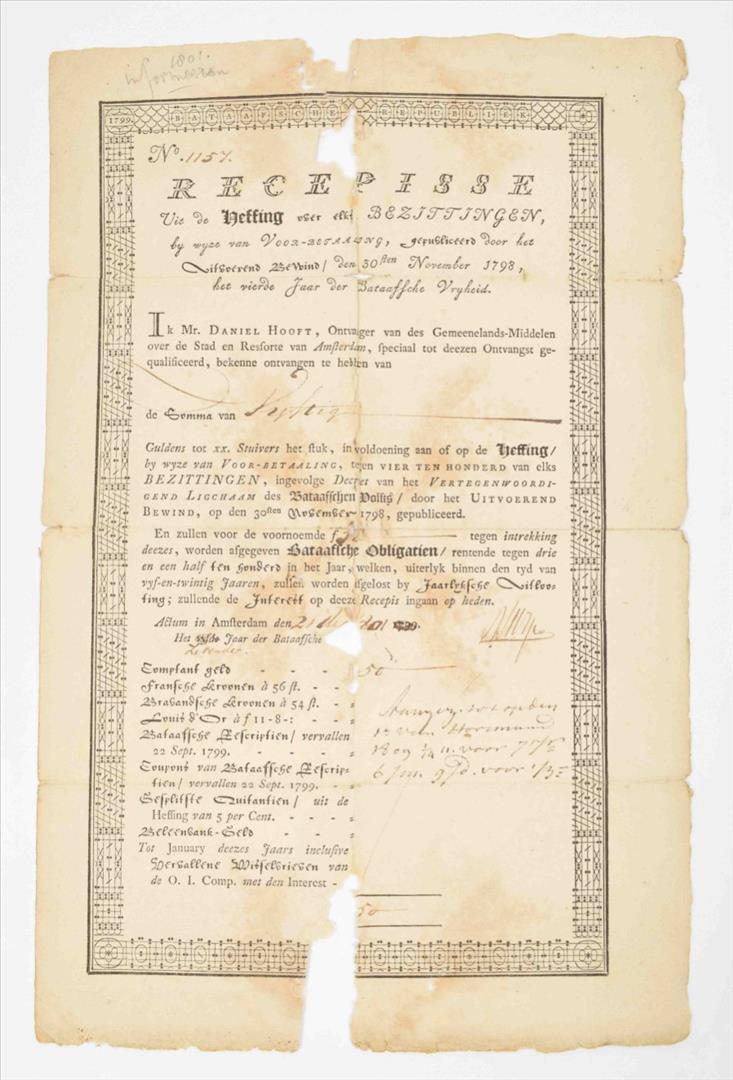 1801.
1799. BATAAFSCHE REPUBLIEK
No. 1157.
RECEPISSE
Uit de Heffing over elks BEZITTINGEN,
by wyze van VOOR-BETAALING, gepubliceerd door het
Uitvoerend Bewind/ den 30sten November 1798,
het vierde Jaar der Bataafsche Vryheid.
Ik Mr. DANIEL HOOFT, Ontvanger van des Gemeenelands-Middelen
over de Stad en Ressorte van Amsterdam, speciaal tot deezen Ontvangst ge-
qualificeerd, bekenne ontvangen te hebben van
de Somma van Vyftig
Guldens tot xx. Stuivers het stuk, in voldoening aan of op de Heffing/
by wyze van VOOR-BETAALING, tegen VIER TEN HONDERD van elks
BEZITTINGEN, ingevolge Decreet van het VERTEGENWOORDI-
GEND LIGCHAAM des Bataafschen Volks/ door het UITVOEREND
BEWIND, op den 30sten November 1798, gepubliceerd.
En zullen voor de voornoemde f 50 tegen intrekking
deezes, worden afgegeven Bataafsche Obligatien/ rentende tegen drie
en een half ten honderd in het Jaar, welken, uiterlyk binnen den tyd van
vyf-en-twintig Jaaren, zullen worden afgelost by Jaarlyksche Uitloo-
ting; zullende de Interest op deeze Recepis ingaan op heden.
Actum in Amsterdam den 21 1801
Het Jaar der Bataafsche
Zevende.
Comptant geld - - - - 50
Fransche Kroonen à 56 st. - -
Brabandsche Kroonen à 54 st. - -
Louis d'Or à f 11-8-: - - -
Bataafsche Rescriptien/ vervallen
22 Sept. 1799. - - - -
Coupons van Bataafsche Rescrip-
tien/ vervallen 22 Sept. 1799. - -
Gesplitste Quitantien/ uit de
Heffing van 5 per Cent. - - -
Beleenbank-Geld - - -
Tot January deezes Jaars inclusive
Vervallene Wisselbrieven van
de O. I. Comp. met den Interest -
tot op den
1809 1/4 voor
6 voor
50